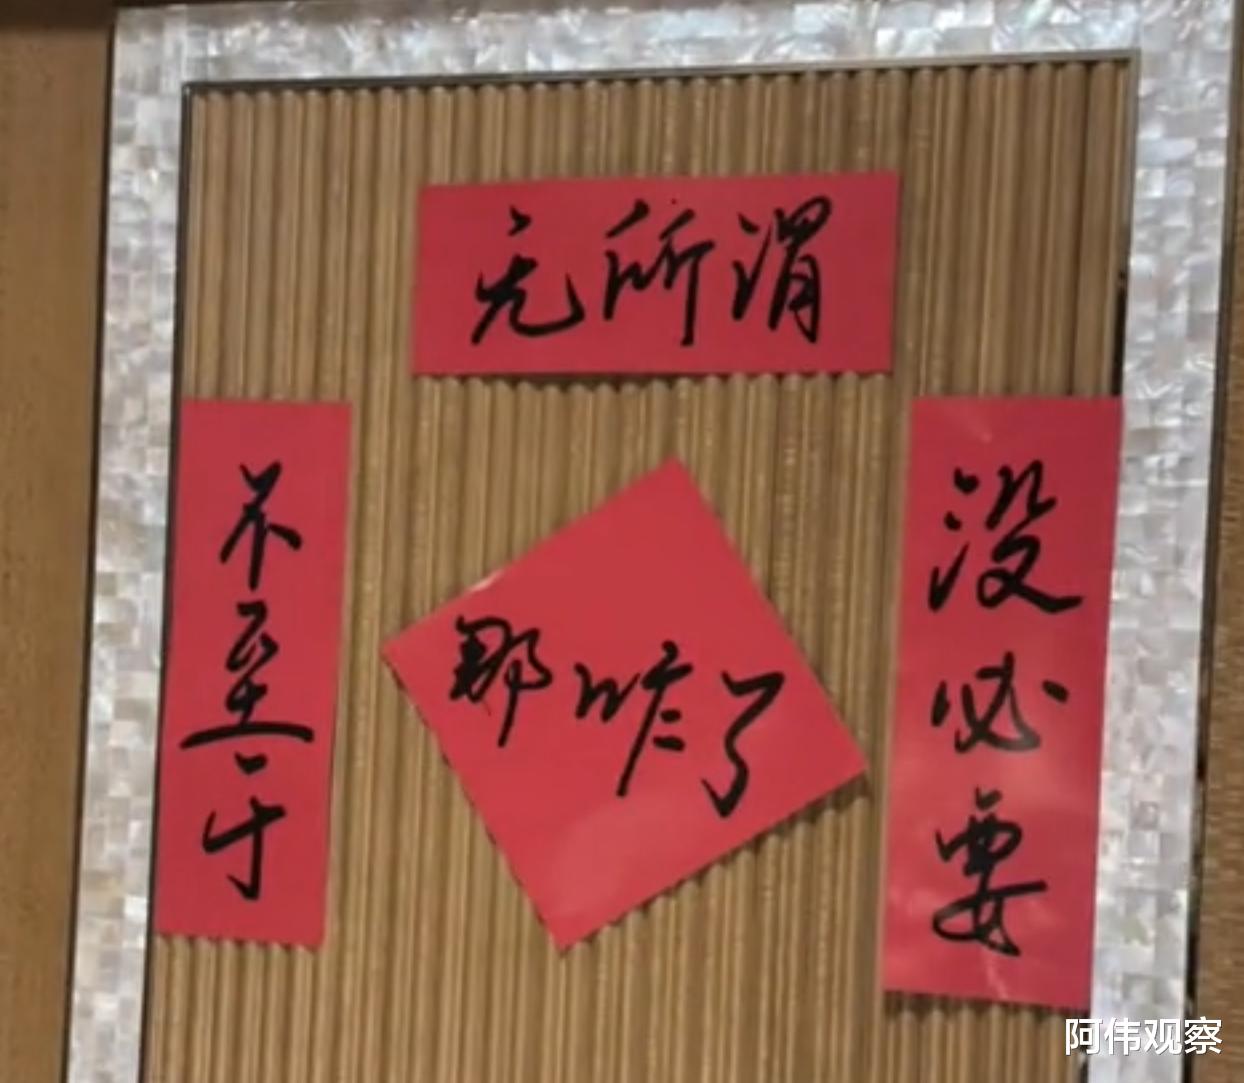 无所谓
没必要
不至于
那咋了
阿伟观察